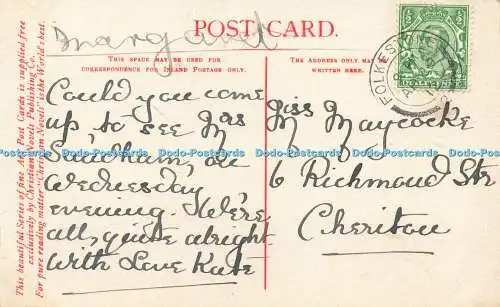 POST CARD.
Margaret
THIS SPACE MAY BE USED FOR
CORRESPONDENCE FOR INLAND POSTAGE ONLY.
THE ADDRESS ONLY MAY BE
WRITTEN HERE.
This beautiful Series of fine Art Post Cards is supplied free
exclusively by Christian Novels Publishing Co.
For pure reading matter "Christian Novels" with the World's best.
Could you come
up, to see Mrs
on
Wednesday
evening. We're
all, quite alright.
With Love Kate
Miss
M Maycocke
6 Richmond Str
Cheriton
FOLKESTONE
HALFPENNY
Dado-Postcards Dado-Postcards Dado-Postcards Dado-Postcards Dado-Postcards